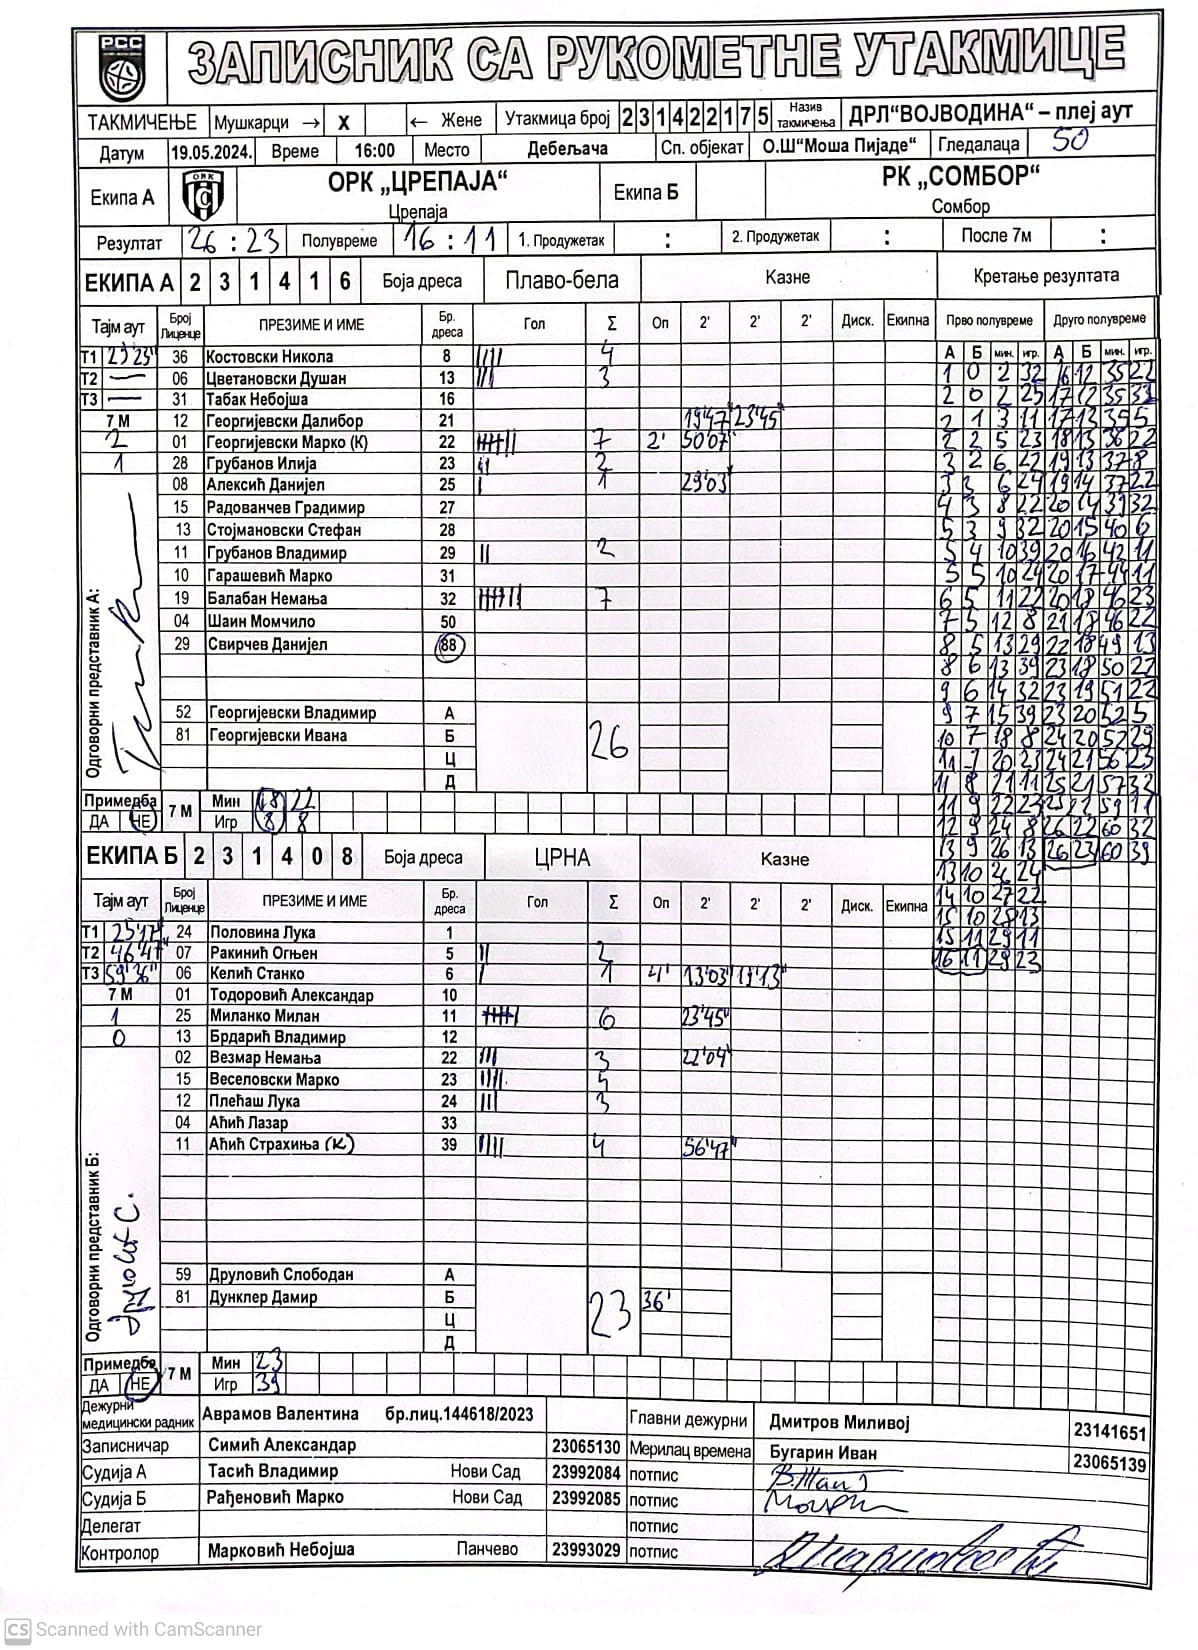 РСС
ЗАПИСНИК СА РУКОМЕТНЕ УТАКМИЦЕ
ТАКМИЧЕЊЕ Мушкарци → X ← Жене Утакмица број 2 3 1 4 2 2 1 7 5 Назив такмичења ДРЛ"ВОЈВОДИНА" – плеј аут
Датум 19.05.2024. Време 16:00 Место Дебељача Сп. објекат О.Ш"Моша Пијаде" Гледалаца 50
Екипа А ОРК ОРК „ЦРЕПАЈА“ Екипа Б РК „СОМБОР“
Црепаја Сомбор
Резултат 26 : 23 Полувреме 16 : 11 1. Продужетак : 2. Продужетак : После 7м :
ЕКИПА А 2 3 1 4 1 6 Боја дреса Плаво-бела Казне Кретање резултата
Тајм аут Број Лиценце ПРЕЗИМЕ И ИМЕ Бр. дреса Гол Σ Оп 2' 2' 2' Диск. Екипна Прво полувреме Друго полувреме
А Б мин. игр. А Б мин. игр.
Т1 36 Костовски Никола 8 |||| 4
Т2 — 06 Цветановски Душан 13 ||| 3
Т3 — 31 Табак Небојша 16
7 М 12 Георгијевски Далибор 21 19'47" 23'45"
2 01 Георгијевски Марко (К) 22 7 2' 50'07"
1 28 Грубанов Илија 23 || 2
08 Алексић Данијел 25 | 1 29'03"
15 Радованчев Градимир 27
13 Стојмановски Стефан 28
11 Грубанов Владимир 29 || 2
10 Гарашевић Марко 31
19 Балабан Немања 32 7
04 Шаин Момчило 50
29 Свирчев Данијел 88
52 Георгијевски Владимир А
81 Георгијевски Ивана Б
Ц
Д
26
Одговорни представник А:
1 0 2 32 16 12 35 22
2 0 2 25 17 12 35 32
2 1 3 11 17 13 35 5
2 2 5 23 18 13 36 22
3 2 6 22 19 13 37 8
3 3 6 24 19 14 37 22
4 3 8 22 20 14 39 32
5 3 9 32 20 15 40 6
5 4 10 39 20 16 42 11
5 5 10 24 20 17 44 11
6 5 11 22 20 18 46 23
7 5 12 8 21 18 46 22
8 5 13 29 22 18 49 13
8 6 13 39 23 18 50 22
9 6 14 32 23 19 51 22
9 7 15 39 23 20 52 5
10 7 18 8 24 20 52 29
11 7 20 23 24 21 56 23
11 8 21 11 25 21 57 32
11 9 22 23 25 22 59 11
12 9 24 8 26 22 60 32
13 9 26 13 26 23 60 39
13 10 26 24
14 10 27 22
15 10 28 13
15 11 29 11
16 11 29 23
Примедба 7 М Мин 18 22
ДА НЕ Игр 8 8
ЕКИПА Б 2 3 1 4 0 8 Боја дреса ЦРНА Казне
Тајм аут Број Лиценце ПРЕЗИМЕ И ИМЕ Бр. дреса Гол Σ Оп 2' 2' 2' Диск. Екипна
Т1 25'17" 24 Половина Лука 1
Т2 46'47" 07 Ракинић Огњен 5 || 2
Т3 59'36" 06 Келић Станко 6 | 1 4' 13'03"
7 М 01 Тодоровић Александар 10
1 25 Миланко Милан 11 6 23'45"
0 13 Брдарић Владимир 12
02 Везмар Немања 22 ||| 3 22'04"
15 Веселовски Марко 23 ||||
12 Плећаш Лука 24 ||| 3
04 Аћић Лазар 33
11 Аћић Страхиња (К) 39 |||| 4 56'47"
59 Друловић Слободан А
81 Дунклер Дамир Б 36'
Ц
Д
23
Одговорни представник Б:
Примедба 7 М Мин 23
ДА НЕ Игр 39
Дежурни медицински радник Аврамов Валентина бр.лиц.144618/2023 Главни дежурни Дмитров Миливој 23141651
Записничар Симић Александар 23065130 Мерилац времена Бугарин Иван 23065139
Судија А Тасић Владимир Нови Сад 23992084 потпис
Судија Б Рађеновић Марко Нови Сад 23992085 потпис
Делегат потпис
Контролор Марковић Небојша Панчево 23993029 потпис
CS Scanned with CamScanner